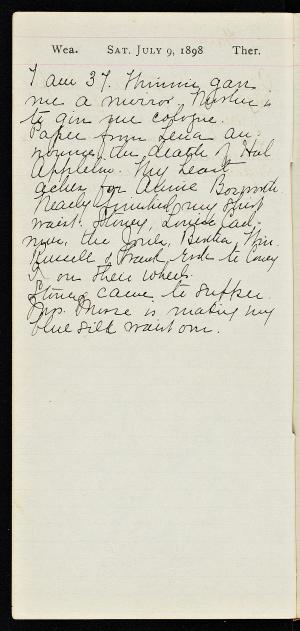 Wea. Sat. July 9, 1898 Ther.
I am 37. Minnie gave
me a mirror,
to give me cologne.
Paper from Lena an-
nounces the death of Hal
Appleton. My heart
aches for Alinie Bosworth.
Nearly finished my striped
waist. Stoney, Louise Cad-
mus, the Bertha, Wm.
Russell & Frank rode to Coney
I. on their wheels.
Stoney came to supper.
Mrs. Morse is making my
blue silk waist over.